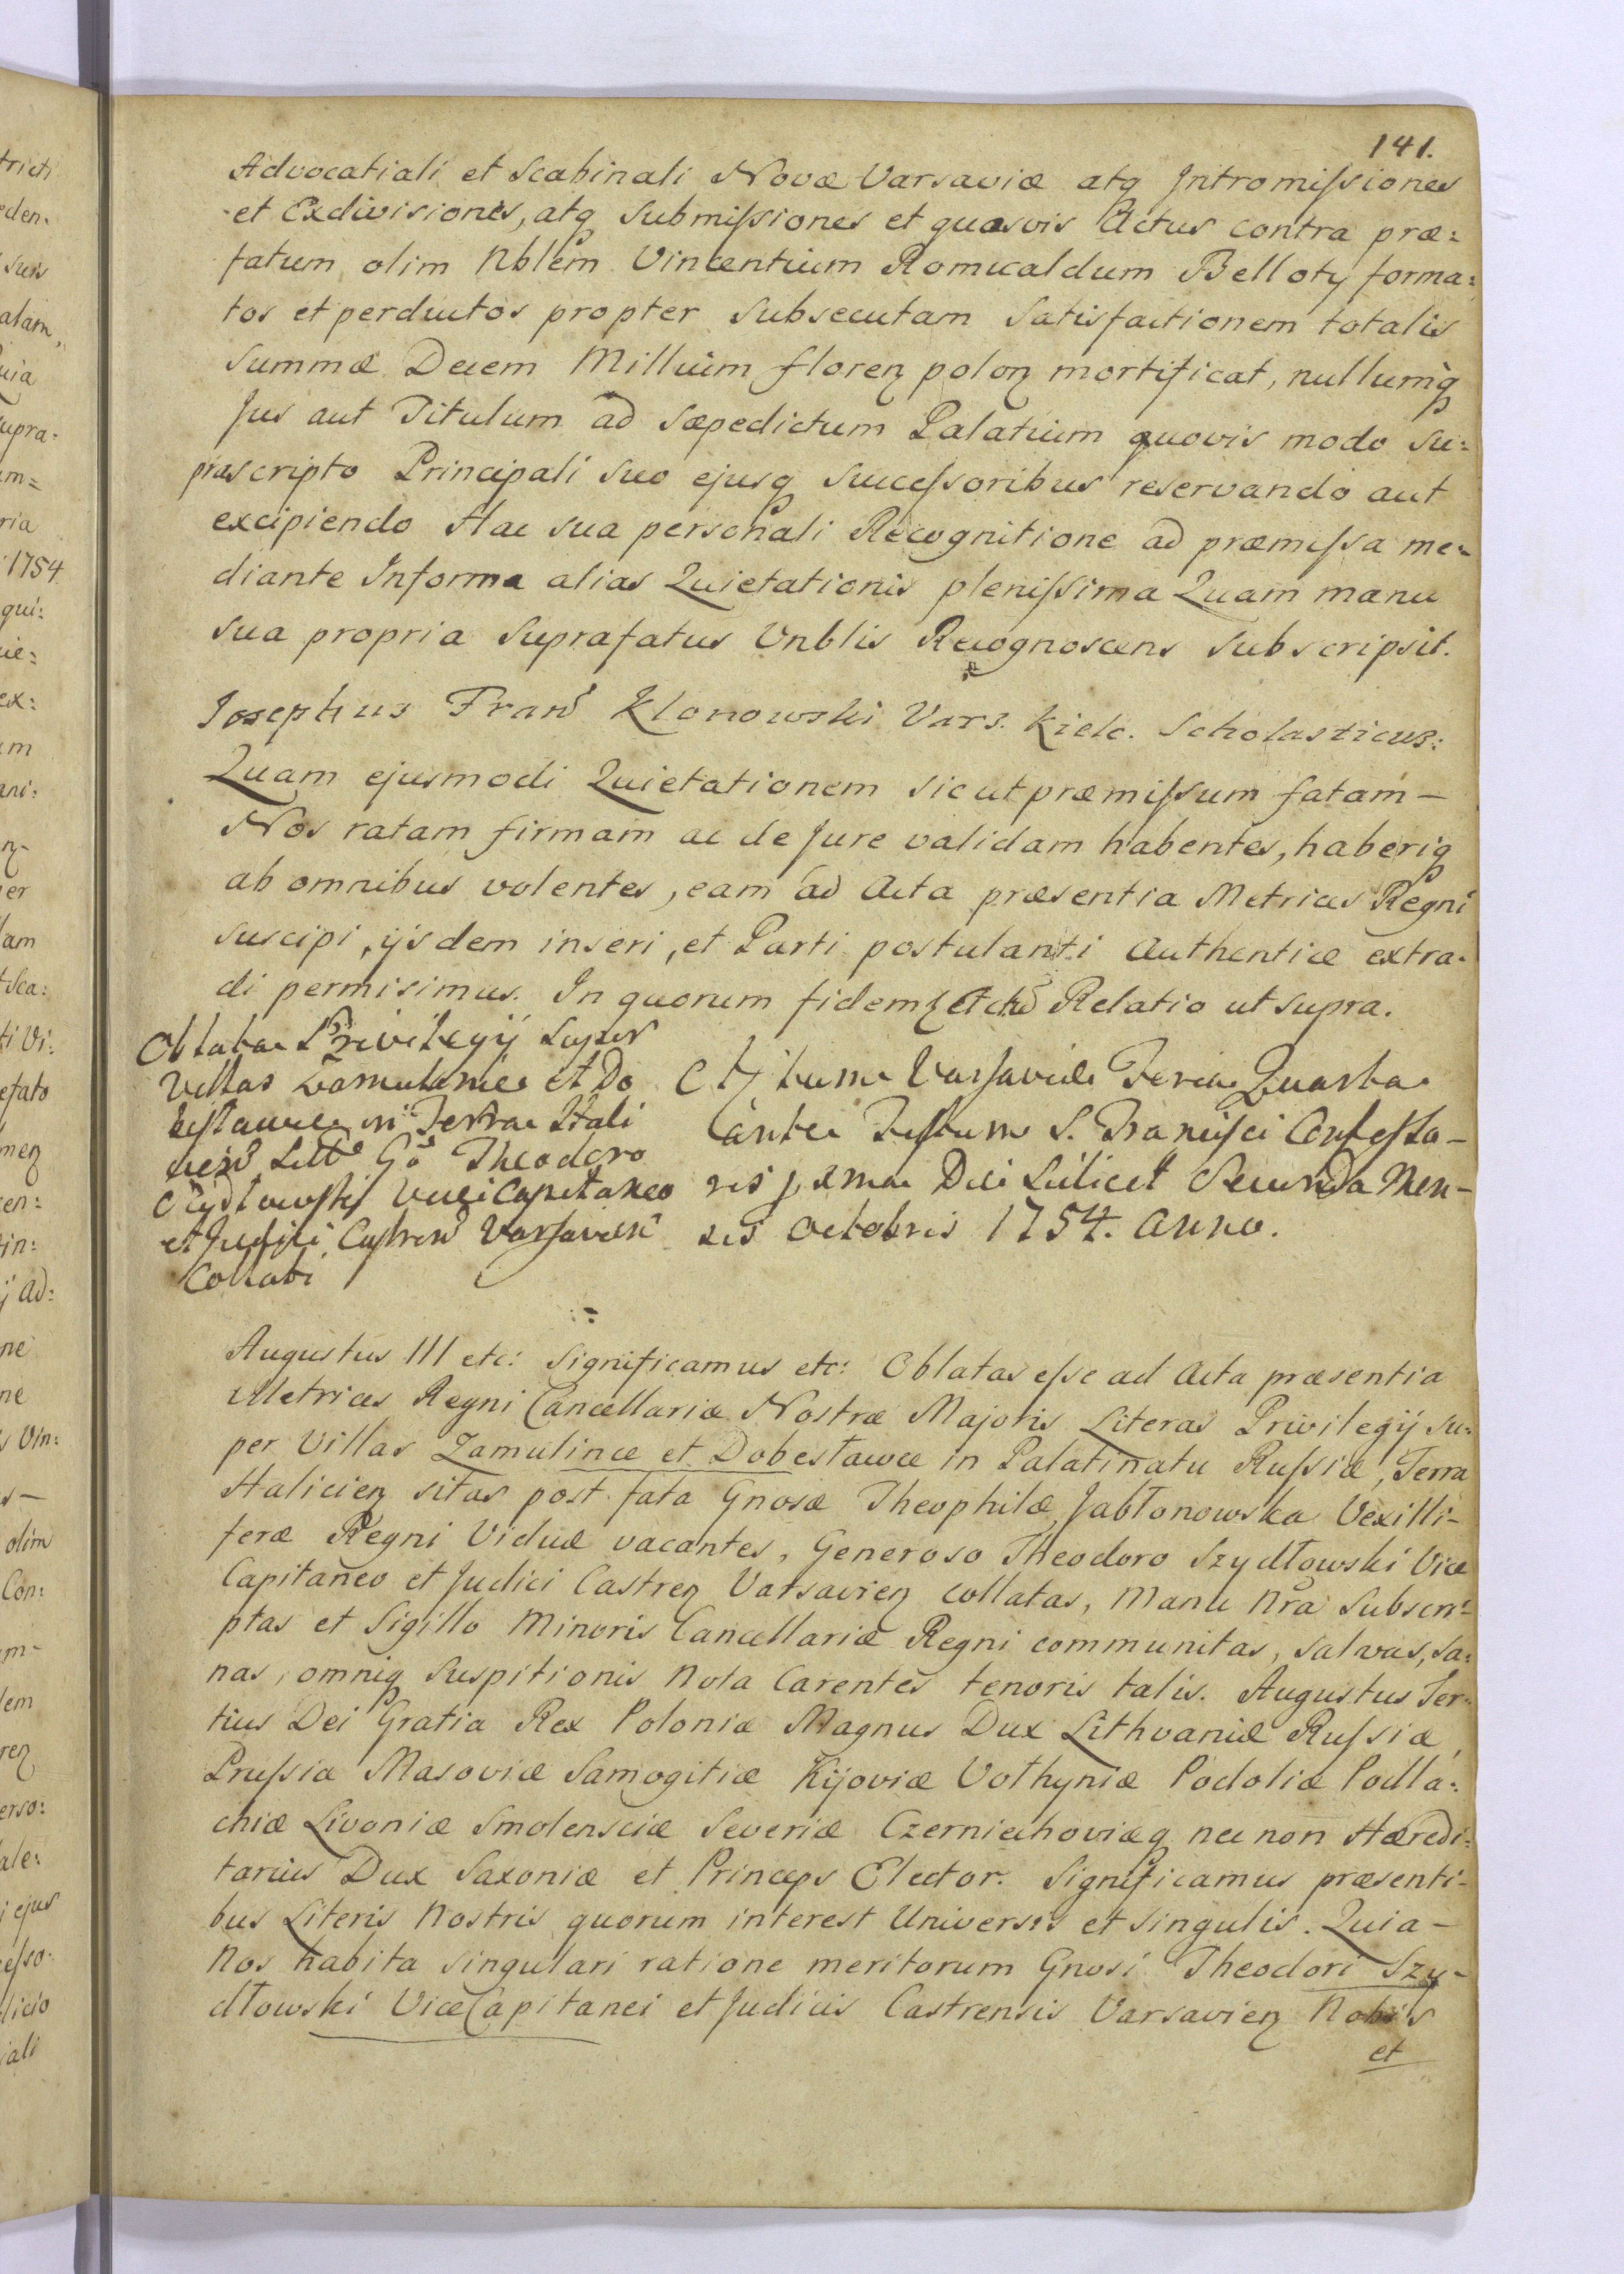 141.
Advocatiali et Scabinali Novæ Varsaviæ atq Intromiſsiones
et Exdivisiones, atq Submiſsiones et quasvis Actus contra præ=
fatum olim Nblem Vincentium Romualdum Belloty forma=
tos et perductos propter Subsecutam Satisfactionem totalis
Summæ Decem Millium floren polon mortificat, nullumq
Jus aut Titulum ad Sæpedictum Palatium quovis modo Su=
prascripto Principali Suo ejusq Succeſsoribus reservando aut
excipiendo Hac sua personali Recognitione ad præmiſsa me=
diante Informa alias Quietationis pleniſsima Quam manu
sua propria Suprafatus Vnblis Recognoscens Subscripsit.
Josephus Franc Klonowski Vars. Kielc. Scholasticus:
Quam ejusmodi Quietationem sicut præmiſsum fatam —
Nos ratam firmam ac de Jure validam habentes, haberiq
ab omnibus volentes, eam ad Acta præsentia Metrices Regni
suscipi, ijsdem inseri, et Parti postulanti Authentice extra=
di permisimus. In quorum fidem Relatio ut supra.
Oblata Privilegij Super
Villas Zamulince et Do
bestawce in Terra Hali
Theodoro
Szydłowski ViceCapitaneo
et Judici Castren Varsavien
Collati
Actum Varsaviæ Feria Quarta
ante Festum S. Francisci Confeſso-
ris Die Scilicet Secunda Men-
sis Octobris 1754. Anno.
Augustus III etc: Significamus etc: Oblatas eſse ad Acta præsentia
Metrices Regni Cancellariæ Nostræ Majoris Literas Privilegij Su=
per Villas Zamulince et Dobestawce in Palatinatu Ruſsiæ, Terra
Halicien sitas post fata Gnosæ Theophilæ Jabłonowska Vexilli-
feræ Regni Viduæ vacantes, Generoso Theodoro Szydłowski Vice
Capitaneo et Judici Castren Varsavien collatas, Manu Nra Subscri=
ptas et Sigillo Minoris Cancellariæ Regni communitas, salvas, sa=
nas, omniq Suspitionis Nota Carentes tenoris talis. Augustus Ter=
tius Dei Gratia Rex Poloniæ Magnus Dux Lithvaniæ Ruſsiæ,
Pruſsiæ Masoviæ Samogitiæ Kijoviæ Volhyniæ Podoliæ Podla=
chiæ Livoniæ Smolensciæ Severiæ Czerniechoviæq nec non Hæredi=
tarius Dux Saxoniæ et Princeps Elector. Significamus præsenti-
bus Literis Nostris quorum interest Universis et Singulis. Quia —
Nos habita singulari ratione meritorum Gnosi Theodori Szy-
dłowski ViceCapitanei et Judicis Castrensis Varsavien Nobis
et